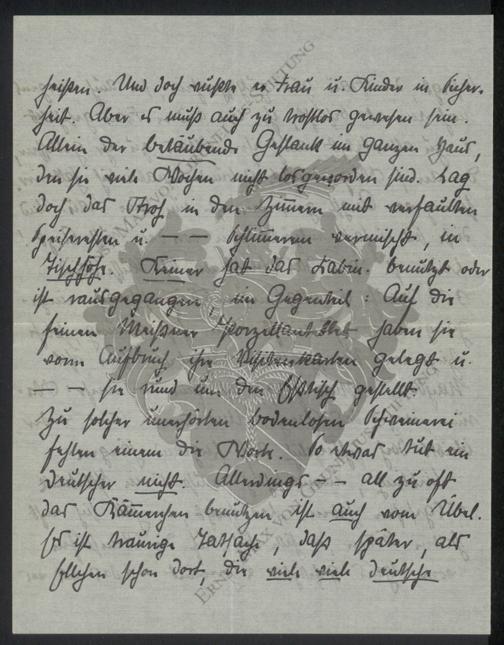 heißen. Und doch wußte er Frau u. Kinder in Sicher-
heit. Aber es muß auch zu trostlos gewesen sein.
Allein der betäubende Gestank im ganzen Haus,
den sie viele Wochen nicht losgeworden sind. Lag
doch das Stroh in den Zimmern mit verfaulten
Speiseresten u. — — Schlimmerem vermischt, in
Tischhöhe. Keiner hat das Kabin. benutzt oder
ist rausgegangen im Gegenteil: Auf die
feinen Meißner Porzellan haben sie
vorm Aufbruch ihre Visitenkarten gelegt u.
— — sie rund um den Eßtisch gestellt.
Zu solcher unerhörten bodenlosen Schweinerei
fehlen einem die Worte. So etwas tut ein
Deutscher nicht. Allerdings — all zu oft
das Kämmerchen benutzen ist auch vom Übel.
Es ist traurige Tatsache, daß später, als
schon dort, die viele viele deutsche
ERNST MAX VON GRUNELIUS-STIFTUNG